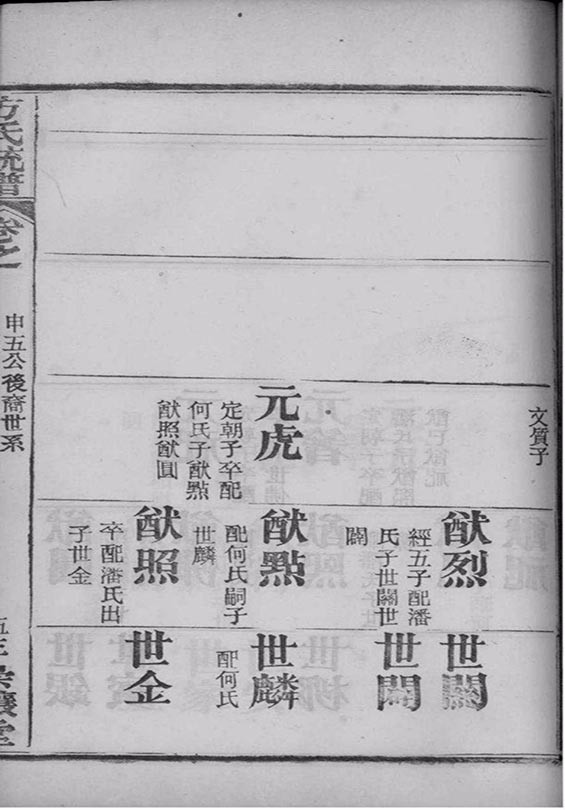 文質子
元虎
定朝子卒配
何氏子猷點
猷照猷圓
猷烈
經五子配潘
氏子世關世
闊
猷點
配何氏嗣子
世麟
猷照
卒配潘氏出
子世金
世關
世闊
世麟
配何氏
世金
方氏統譜
卷之
申五公後裔世系
五